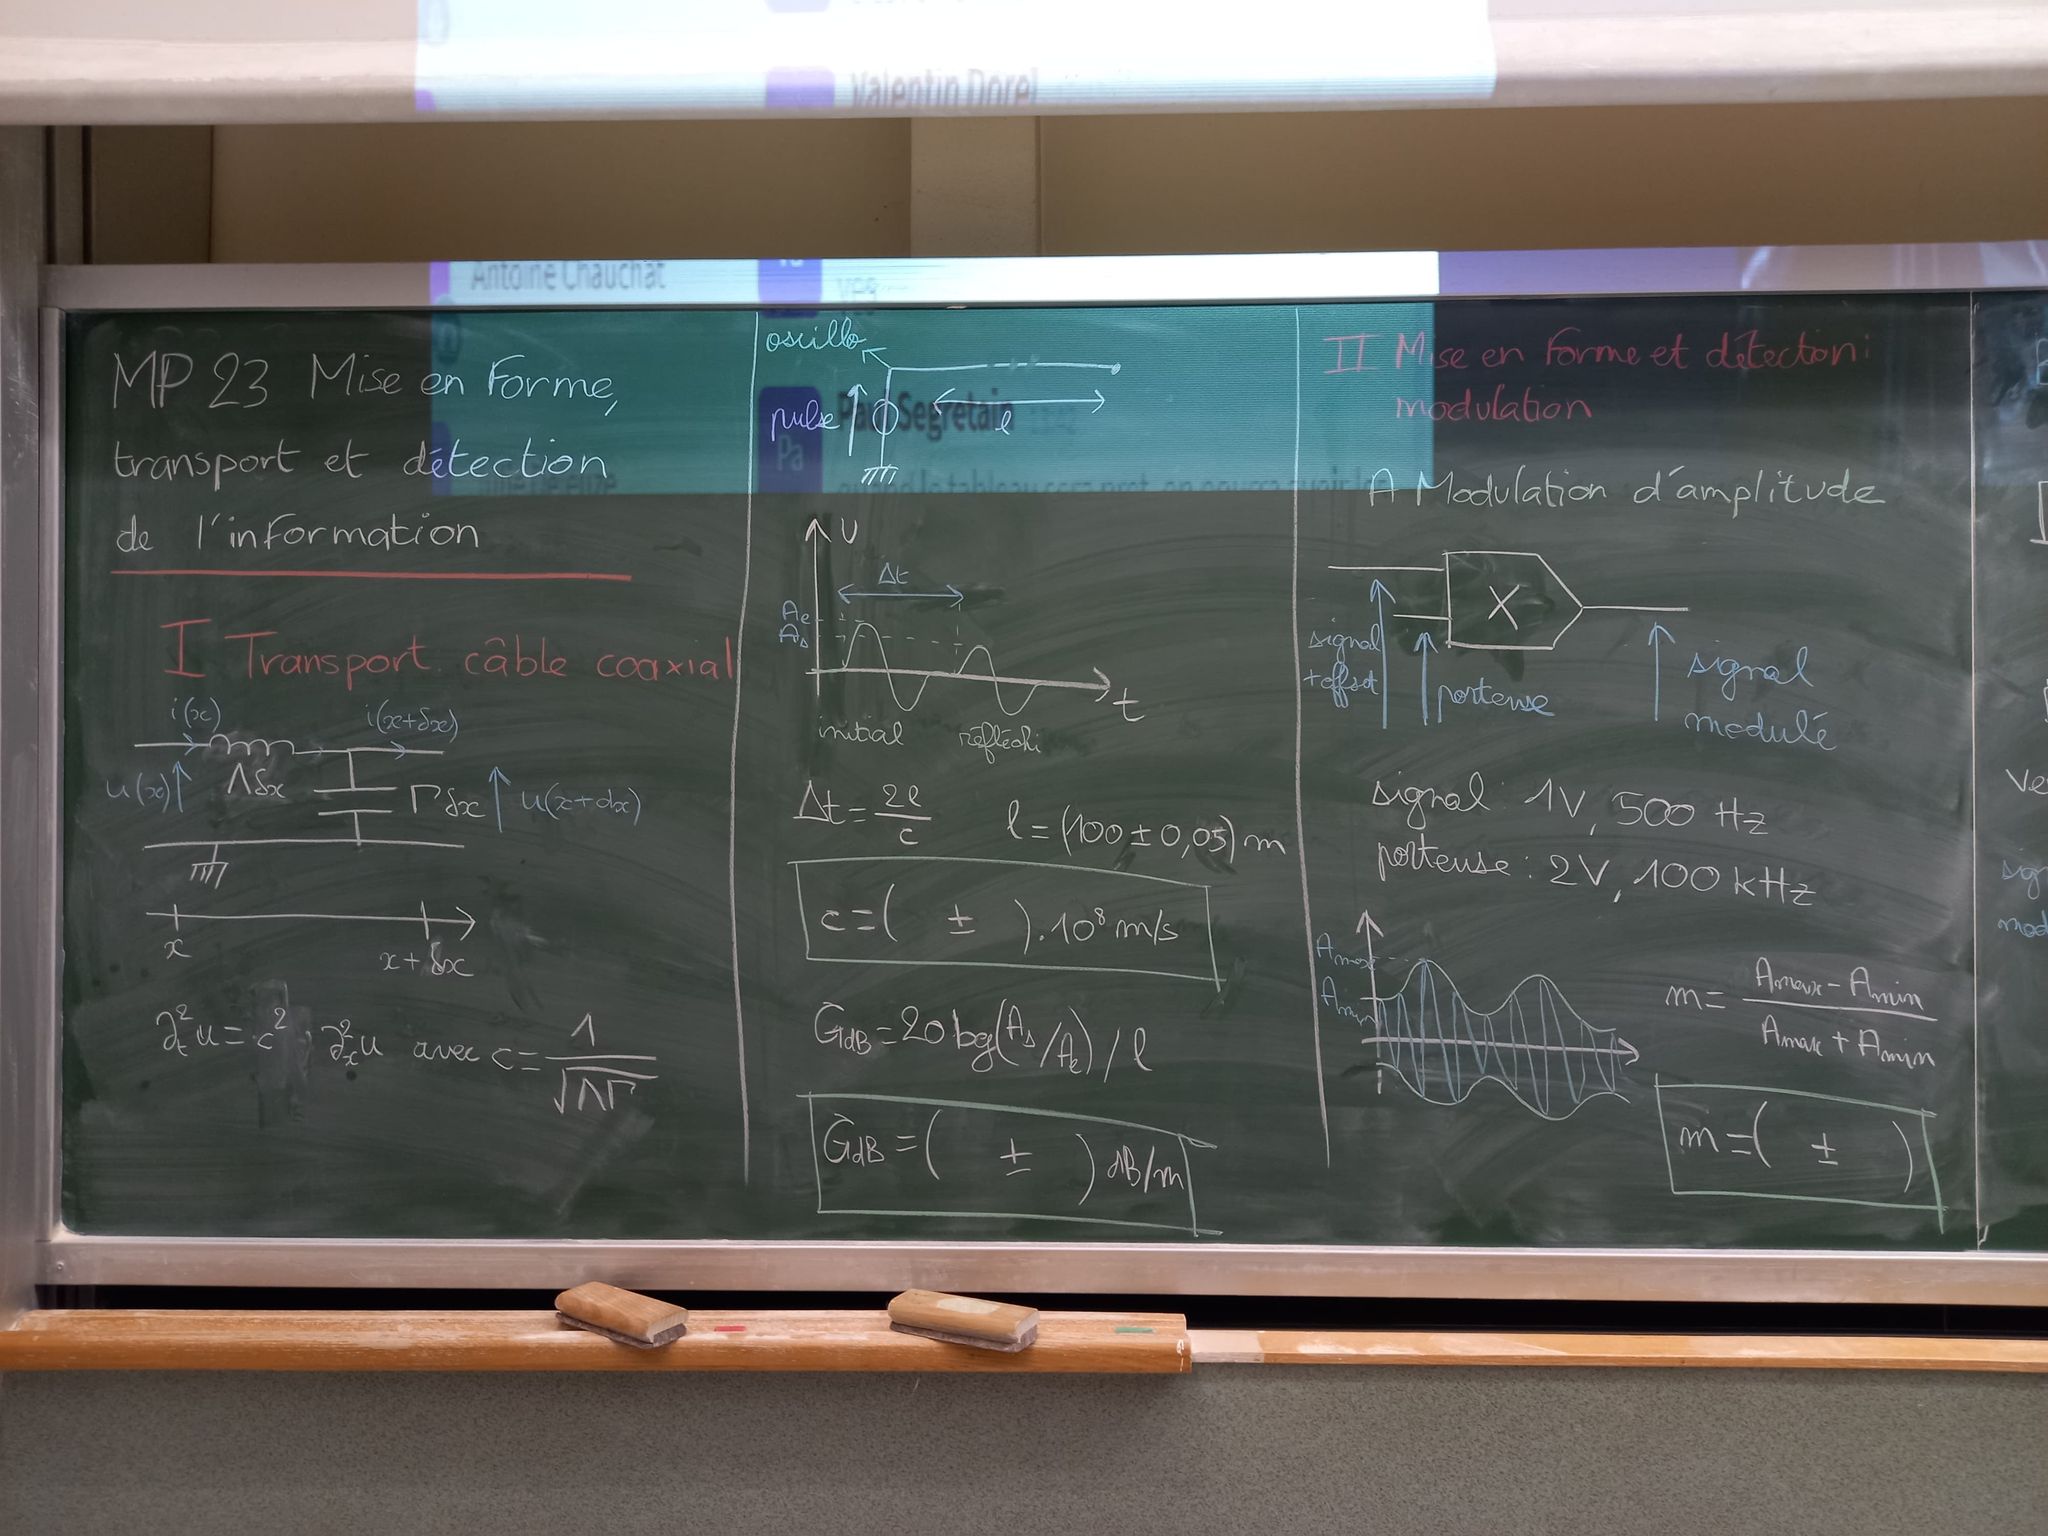 Valentin Dorel
Antoine Chauchat
yes
Paul Segretain
Pa
MP 23 Mise en Forme,
transport et détection
de l'information
I Transport câble coaxial
i(x)
i(x+δx)
u(x)
Λδx
Γδx
u(x+dx)
x
x+δx
∂²ₜu = c² ∂²ₓu avec c = 1/√ΛΓ
oscillo
pulse
l
U
Δt
Ae
As
t
initial
réfléchi
Δt = 2l/c
l = (100 ± 0,05) m
c = ( ± ).10⁸ m/s
GdB = 20 log(As/Ae) / l
GdB = ( ± ) dB/m
II Mise en forme et détection :
modulation
A Modulation d'amplitude
X
signal
+offset
porteuse
signal
modulé
signal : 1V, 500 Hz
porteuse : 2V, 100 kHz
Amax
Amin
m = Amax - Amin / Amax + Amin
m = ( ± )